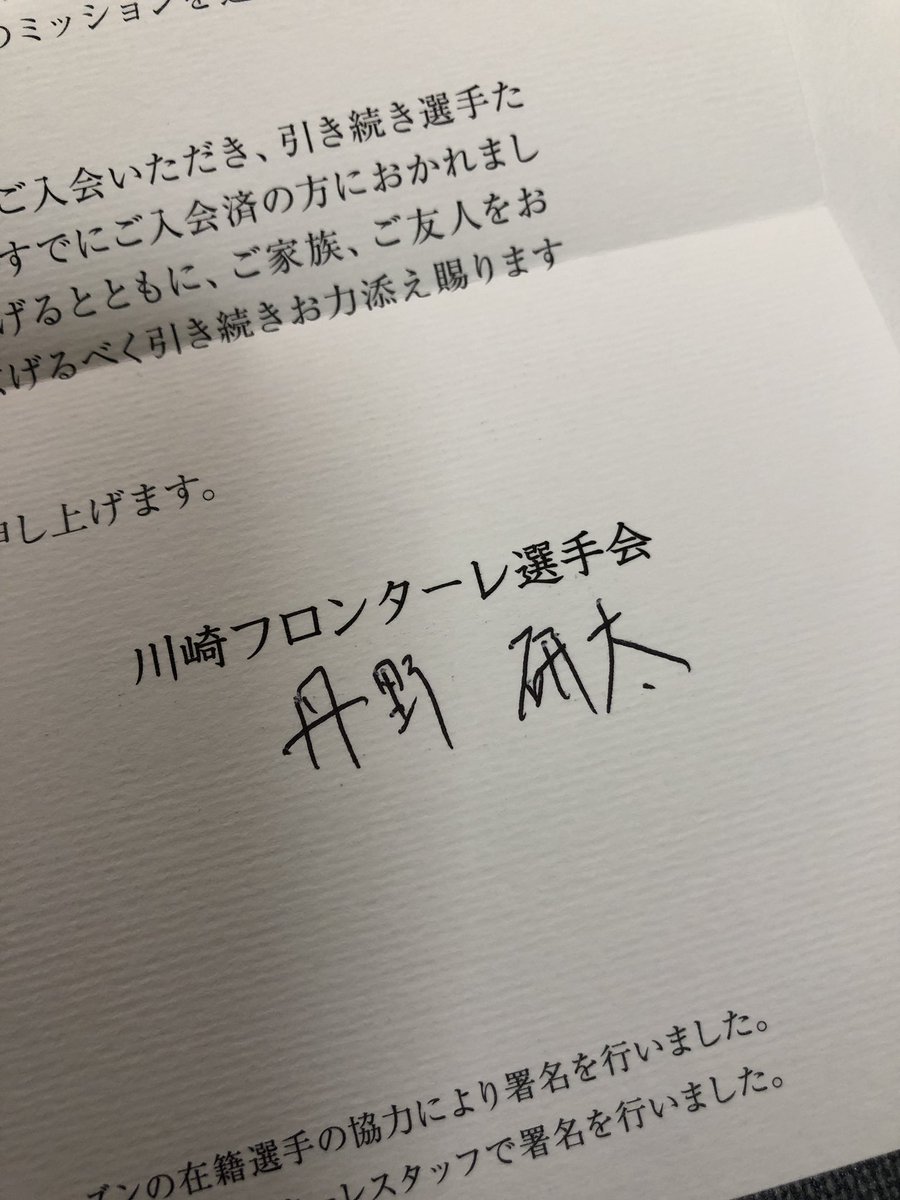 のミッションを
ご入会いただき、引き続き選手た
すでにご入会済の方におかれまし
げるとともに、ご家族、ご友人をお
げるべく引き続きお力添え賜ります
し上げます。
川崎フロンターレ選手会
丹野 研太
ズンの在籍選手の協力により署名を行いました。
ーレスタッフで署名を行いました。